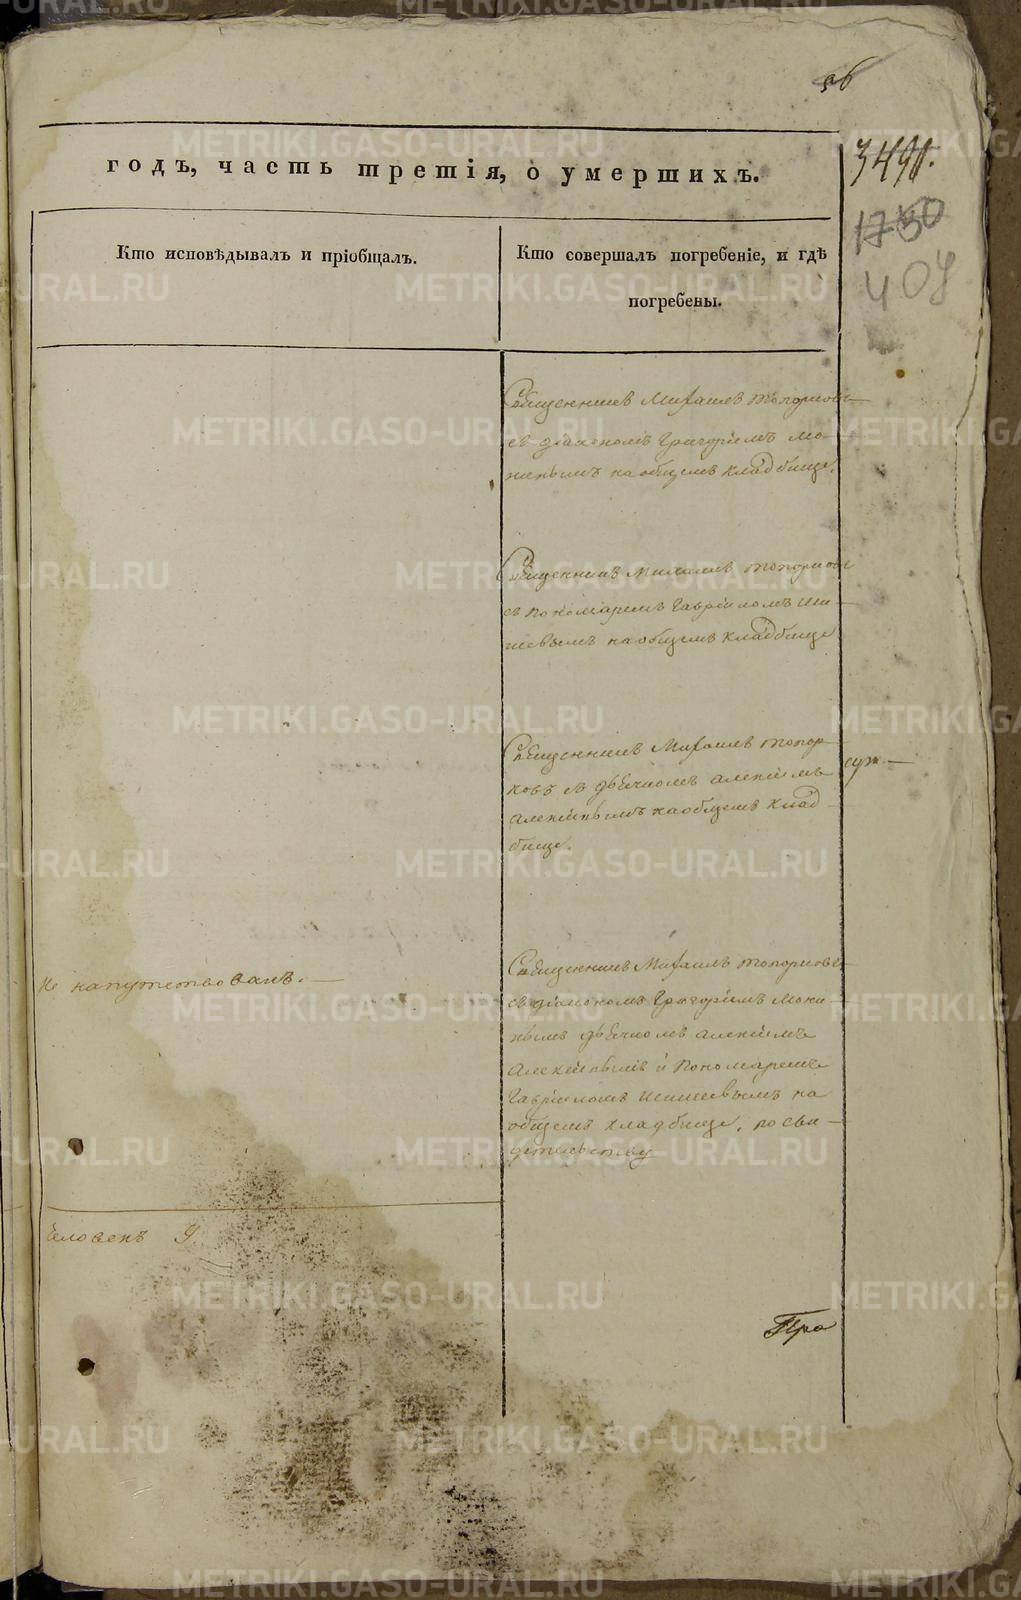 56
годъ, часть третія, о умершихъ.
3491.
1750
407
Кто исповѣдывалъ и пріобщалъ.
Кто совершалъ погребеніе, и гдѣ
погребены.
Священникъ Михаилъ Топорковъ
съ діакономъ Григоріемъ Мо-
нинымъ на общемъ кладбище.
Священникъ Михаилъ Топорковъ
съ пономаремъ Гавріиломъ Ши-
шевымъ на общемъ кладбище
Священникъ Михаилъ Топор-
ковъ съ дьячкомъ Алексіемъ
Алексіевымъ на общемъ клад-
бище.
Не напутствованъ.
Священникъ Михаилъ Топорковъ
съ діакономъ Григоріемъ Мони-
нымъ дьячкомъ Алексіемъ
и Пономаремъ
Гавріиломъ Шишевымъ на
общемъ кладбище, по сви-
детельству
Человекъ
Про
METRIKI.GASO-URAL.RU